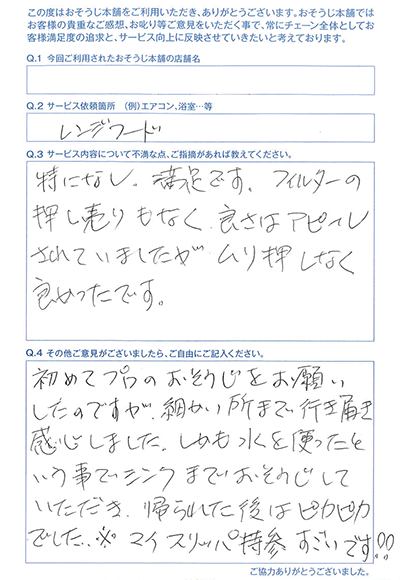 この度はおそうじ本舗をご利用いただき、ありがとうございます。おそうじ本舗では
お客様の貴重なご感想、お叱り等ご意見をいただく事で、常にチェーン全体としてお
客様満足度の追求と、サービス向上に反映させていきたいと考えております。
Q.1 今回ご利用されたおそうじ本舗の店舗名
Q.2 サービス依頼箇所 (例)エアコン、浴室…等
レンジフード
Q.3 サービス内容について不満な点、ご指摘があれば教えてください。
特になし。満足です。フィルターの
押し売りもなく、良さはアピール
されていましたが ムリ押しなく
良かったです。
Q.4 その他ご意見がございましたら、ご自由にご記入ください。
初めてプロのおそうじをお願い
したのですが、細かい所まで行き届き
感心しました。しかも水を使ったと
いう事でシンクまでおそうじして
いただき、帰られた後はピカピカ
でした。※マイスリッパ持参 すごいです!!
ご協力ありがとうございました。